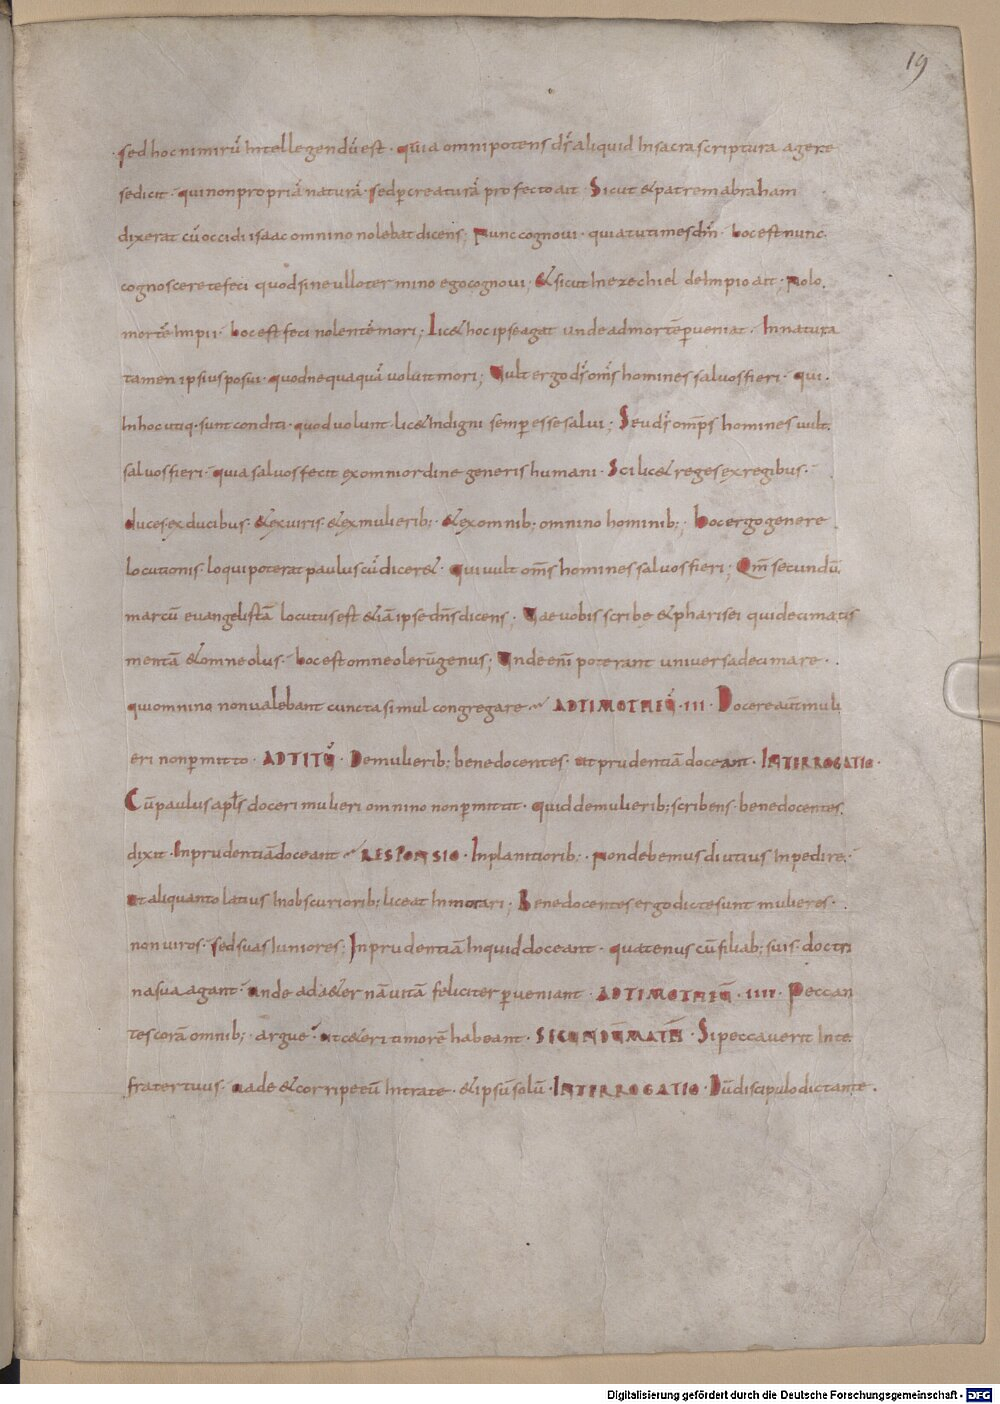 19
sed hoc nimirū intellegendū est · quia omnipotens dš aliquid in sacra scriptura agere
se dicit · qui non propriā naturā · sed p̄ creaturā profecto ait · Sicut & patrem abraham
dixerat cū occidi isaac omnino nolebat dicens; Nunc cognovi · quia tu times dn̄m · hoc est nunc
cognoscere te feci quod sine ullo termino ego cognovi; & sicut in ezechiel de impio ait · Nolo
mortē impii · hoc est feci nolentē mori; lic& hoc ipse agat unde ad mortē p̄veniat · In natura
tamen ipsius posui · quod nequaquā voluit mori; Vult ergo dš om̄s homines salvos fieri · qui
in hoc utiq· sunt conditi · quod volunt · lic& indigni semp̄ esse salvi; Seu dš omp̄s homines vult
salvos fieri · quia salvos fecit ex omni ordine generis humani · Scilic& reges ex regibus ·
duces ex ducibus · & ex viris · & ex mulierib; · & ex omnib; omnino hominib; · hoc ergo genere
locutionis · loqui poterat paulus cū dicer& · qui vult om̄s homines salvos fieri; Qm̄ secundū
marcū evangelistā locutus est &iā ipse dn̄s dicens; Vae vobis scribe & pharisei qui decimatis
mentā & omne olus · hoc est omne olerū genus; Unde eni poterant universa decimare ·
qui omnino non valebant cuncta simul congregare · AD TIMOTHEŪ · III · Docere aūt muli
eri non p̄mitto · AD TITŪ · De mulierib; bene docentes · ut prudentiā doceant · INTERROGATIO ·
Cū paulus apl̄s doceri mulieri omnino non p̄mittit · quid de mulierib; scribens · bene docentes
dixit · In prudentiā doceant · RESPONSIO · In planitiorib; · non debemus diutius inpedire ·
ut aliquanto latius in obscuriorib; liceat inmorari; Bene docentes ergo dicte sunt mulieres ·
non viros · sed suas iuniores; In prudentiā inquid doceant · quatenus cū filiab; suis · doctri
na sua agant · unde ad a&ernā vitā feliciter p̄veniant · AD TIMOTHEŪ · IIII · Peccan
tes corā omnib; · argue · ut c&eri timorē habeant · SECUNDŪ MATH̄ · Si peccaverit in te
frater tuus · vade & corripe eū inter te · & ipsū solū · INTERROGATIO · Dū discipulo dictante ·
Digitalisierung gefördert durch die Deutsche Forschungsgemeinschaft · DFG